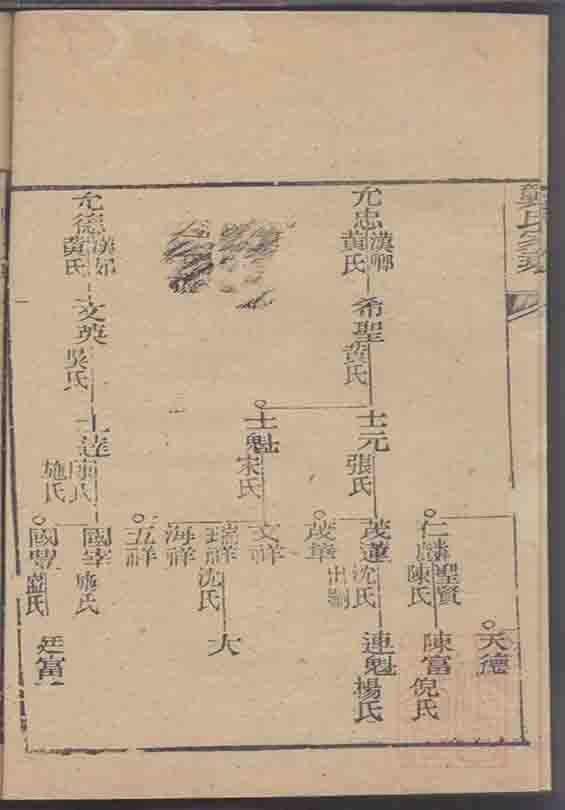 允忠
漢卿
黃氏
希聖
黃氏
士元
張氏
士魁
宋氏
仁
聖賢
陳氏
茂蓮
沈氏
茂華
出嗣
文祥
瑞祥
沈氏
海祥
五祥
天德
陳富
倪氏
連魁
楊氏
大
允德
黃氏
文英
吳氏
施氏
國宰
施氏
國豐
藍氏
廷富